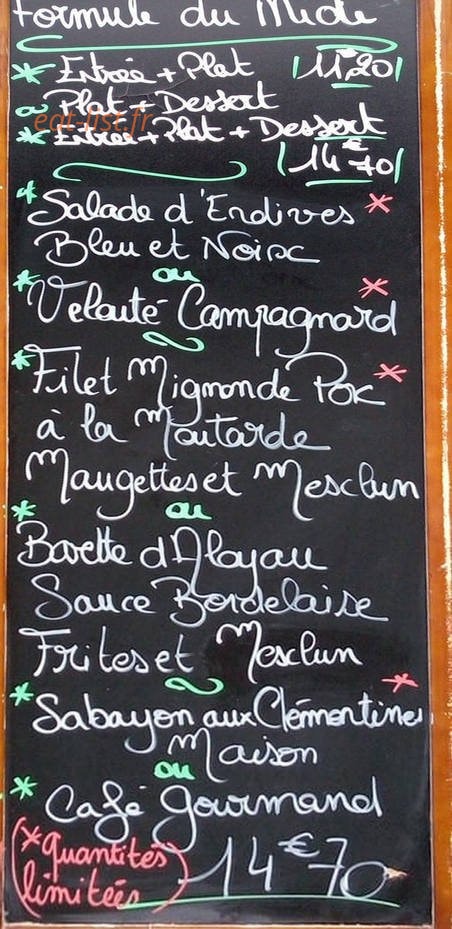 Formule du Midi
* Entrée + Plat 11€20
ou Plat + Dessert
eat-list.fr
* Entrée + Plat + Dessert
14€70
* Salade d'Endives *
Bleu et Noix
ou
* Velouté Campagnard *
* Filet Mignon de Porc *
à la Moutarde
Maugettes et Mesclun
ou
* Bavette d'Aloyau
Sauce Bordelaise
Frites et Mesclun
* Sabayon aux Clémentines *
Maison
ou
* Café gourmand
(* quantités
limitées) 14€70